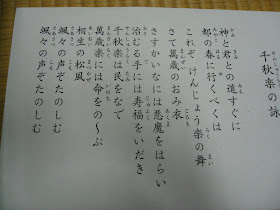 千秋楽の詠
神と君との道すぐに
都の春に行くべくは
これぞ げんじょう楽の舞
さて萬歳のおみ衣
さすかいなには悪魔をはらい
治むる手には寿福をいだき
千秋楽は民をなで
萬歳楽には命をの〜ぶ
相生の松風
颯々の声ぞたのしむ
颯々の声ぞたのしむ